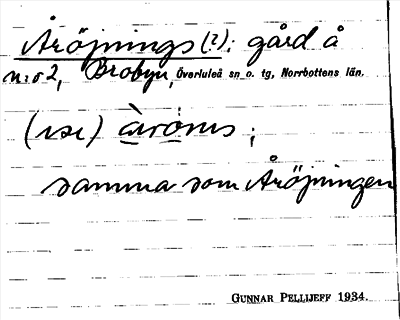 Åröjnings (?); gård å
n:o 2, Brobyn, Överluleå sn o. tg, Norrbottens län.
(vsc) àròṁs ;
samma som Åröjningen
GUNNAR PELLIJEFF 1934.